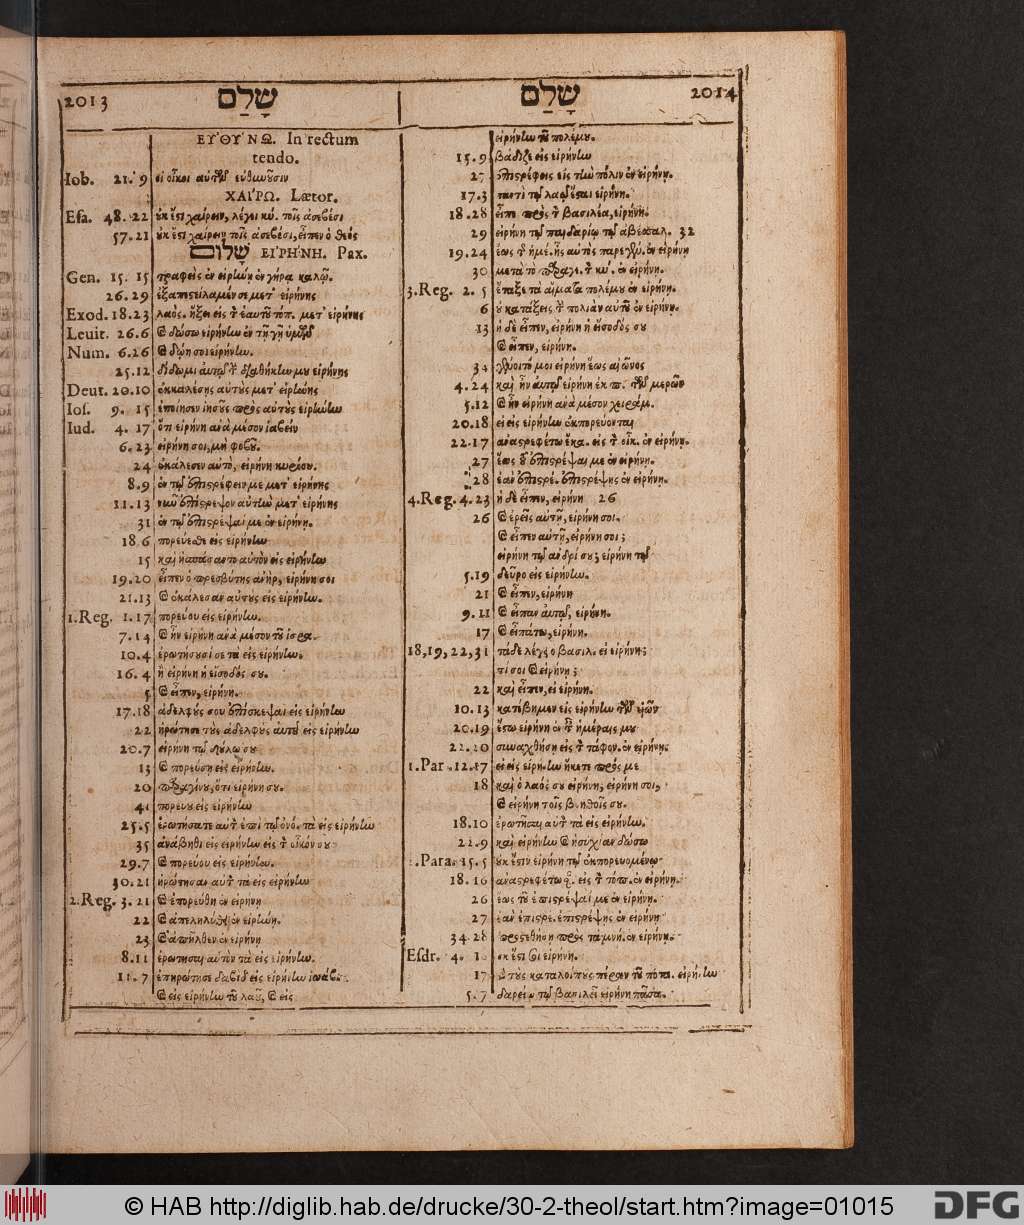 2013 שָׁלַם
ΕΥ᾿ΘΥ΄ΝΩ. In rectum
tendo.
Iob. 21. 9 οἱ οἶκοι αὐτῶν εὐθηνοῦσιν
ΧΑΙ΄ΡΩ. Lætor.
Esa. 48. 22 οὐκ ἔστι χαίρειν, λέγει κύ. τοῖς ἀσεβέσι
57. 21 οὐκ ἔστι χαίρειν τοῖς ἀσεβέσι, εἶπεν ὁ θεός
שָׁלוֹם ΕΙΡΗ΄ΝΗ. Pax.
Gen. 15. 15 τραφεὶς ἐν εἰρήνῃ ἐν γήρᾳ καλῷ.
26. 29 ἐξαπεστείλαμέν σε μετ᾿ εἰρήνης
Exod. 18. 23 λαὸς. ἥξει εἰς τ̀ ἑαυτοῦ τόπ. μετ᾿ εἰρήνης
Leuit. 26. 6 καὶ δώσω εἰρήνην ἐν τῇ γῇ ὑμῶν
Num. 6. 26 καὶ δῴη σοι εἰρήνην.
25. 12 δίδωμι αὐτῷ τ̀ διαθήκην μου εἰρήνης
Deut. 20. 10 ἐκκαλέσῃς αὐτοὺς μετ᾿ εἰρήνης
Ios. 9. 15 ἐποίησεν ἰησοῦς πρὸς αὐτοὺς εἰρήνην
Iud. 4. 17 ὅτι εἰρήνη ἀνὰ μέσον ἰαβεὶν
6. 23 εἰρήνη σοι, μὴ φοβοῦ.
24 ἐκάλεσεν αὐτὸ, εἰρήνη κυρίου.
8. 9 ἐν τῷ ἐπιστρέφειν με μετ᾿ εἰρήνης
11. 13 νῦν ἐπίστρεψον αὐτὴν μετ᾿ εἰρήνης
31 ἐν τῷ ἐπιστρέψαι με ἐν εἰρήνῃ.
18. 6 πορεύεσθε εἰς εἰρήνην
15 καὶ ἠσπάσαντο αὐτὸν εἰς εἰρήνην
19. 20 εἶπεν ὁ πρεσβύτης ἀνὴρ, εἰρήνη σοι
21. 13 καὶ ἐκάλεσαν αὐτοὺς εἰς εἰρήνην.
1. Reg. 1. 17 πορεύου εἰς εἰρήνην.
7. 14 καὶ ἦν εἰρήνη ἀνὰ μέσον τοῦ ἰσρα.
10. 4 ἐρωτήσουσί σε τὰ εἰς εἰρήνην.
16. 4 ἢ εἰρήνη ἡ εἴσοδός σου.
5 καὶ εἶπεν, εἰρήνη.
17. 18 ἀδελφούς σου ἐπίσκεψαι εἰς εἰρήνην
22 ἠρώτησε τοὺς ἀδελφοὺς αὐτοῦ εἰς εἰρήνην
20. 7 εἰρήνη τῷ δούλῳ σου
13 καὶ πορεύσῃ εἰς εἰρήνην.
20 παραγίνου, ὅτι εἰρήνη σου.
41 πορεύου εἰς εἰρήνην
25. 5 ἐρωτήσατε αὐτ̀ ἐπὶ τῷ ὀνό. τὰ εἰς εἰρήνην
35 ἀνάβηθι εἰς εἰρήνην εἰς τ̀ οἶκόν σου
29. 7 καὶ πορεύου εἰς εἰρήνην.
30. 21 ἠρώτησαν αὐτ̀ τὰ εἰς εἰρήνην
2. Reg. 3. 21 καὶ ἐπορεύθη ἐν εἰρήνῃ
22 καὶ ἀπεληλύθει ἐν εἰρήνῃ.
23 καὶ ἀπῆλθεν ἐν εἰρήνῃ
8. 11 ἐρωτῆσαι αὐτὸν τὰ εἰς εἰρήνην.
11. 7 ἐπηρώτησε δαβὶδ εἰς εἰρήνην ἰωάβ.
καὶ εἰς εἰρήνην τοῦ λαοῦ, καὶ εἰς
שָׁלַם 2014
εἰρήνην τοῦ πολέμου.
15. 9 βάδιζε εἰς εἰρήνην
27 ἐπιστρέφεις εἰς τὴν πόλιν ἐν εἰρήνῃ.
17. 3 παντὶ τῷ λαῷ ἔσται εἰρήνη.
18. 28 εἶπε πρὸς τ̀ βασιλέα, εἰρήνη.
29 εἰρήνη τῷ παιδαρίῳ τῷ ἀβεσσαλ. 32
19. 24 ἕως τ̀ ἡμέ. ἧς αὐτὸς παρεγέν. ἐν εἰρήνῃ
30 μετὰ τὸ παραγε. τ̀ κύ. ἐν εἰρήνῃ.
3. Reg. 2. 5 ἔταξε τὰ αἵματα πολέμου ἐν εἰρήνῃ.
6 οὐ κατάξεις τ̀ πολιὰν αὐτοῦ ἐν εἰρήνῃ.
13 ἡ δὲ εἶπεν, εἰρήνη ἡ εἴσοδός σου
καὶ εἶπεν, εἰρήνη.
34 γένοιτό μοι εἰρήνη ἕως αἰῶνος
4. 24 καὶ ἦν αὐτῷ εἰρήνη ἐκ π. τῶν μερῶν
5. 12 καὶ ἦν εἰρήνη ἀνὰ μέσον χειράμ.
20. 18 εἰ εἰς εἰρήνην ἐκπορεύονται
22. 17 ἀναστρεφέτω ἕκα. εἰς τ̀ οἶκ. ἐν εἰρήνῃ.
27 ἕως τοῦ ἐπιστρέψαι με ἐν εἰρήνῃ.
28 ἐὰν ἐπιστρέ. ἐπιστρέψῃς ἐν εἰρήνῃ.
4. Reg. 4. 23 ἡ δὲ εἶπεν, εἰρήνη 26
26 καὶ ἐρεῖς αὐτῇ, εἰρήνη σοι.
καὶ εἶπεν αὐτῇ, εἰρήνη σοι;
εἰρήνη τῷ ἀνδρί σου; εἰρήνη τῷ
5. 19 δεῦρο εἰς εἰρήνην.
21 καὶ εἶπεν, εἰρήνη
9. 11 καὶ εἶπαν αὐτῷ, εἰρήνη.
17 καὶ εἰπάτω, εἰρήνη.
18, 19, 22, 31 τάδε λέγει ὁ βασιλ. εἰ εἰρήνη;
τί σοι καὶ εἰρήνη;
22 καὶ εἶπεν, εἰ εἰρήνη.
10. 13 κατέβημεν εἰς εἰρήνην τῶν υἱῶν
20. 19 ἔστω εἰρήνη ἐν τ̀ ἡμέραις μου
22. 20 συναχθήσῃ εἰς τ̀ τάφον. ἐν εἰρήνῃ.
1. Par. 12. 17 εἰ εἰς εἰρήνην ἥκετε πρός με
18 καὶ ὁ λαός σου εἰρήνη, εἰρήνη σοι,
καὶ εἰρήνη τοῖς βοηθοῖς σου.
18. 10 ἐρωτῆσαι αὐτ̀ τὰ εἰς εἰρήνην.
22. 9 καὶ εἰρήνην καὶ ἡσυχίαν δώσω
2. Para. 15. 5 οὐκ ἔστιν εἰρήνη τῷ ἐκπορευομένῳ
18. 16 ἀναστρεφέτω. εἰς τ̀ τόπ. ἐν εἰρήνῃ.
26 ἕως τοῦ ἐπιστρέψαι με ἐν εἰρήνῃ.
27 ἐὰν ἐπιστρέ. ἐπιστρέψῃς ἐν εἰρήνῃ
34. 28 προστεθήσῃ πρὸς τὰ μνή. ἐν εἰρήνῃ.
Esdr. 4. οὐκ ἔστι εἰρήνη.
17 καὶ τοὺς καταλοίπους πέραν τοῦ ποτα. εἰρήνην
5. 7 δαρείῳ τῷ βασιλεῖ εἰρήνη πᾶσα.
© HAB http://diglib.hab.de/drucke/30-2-theol/start.htm?image=01015
DFG